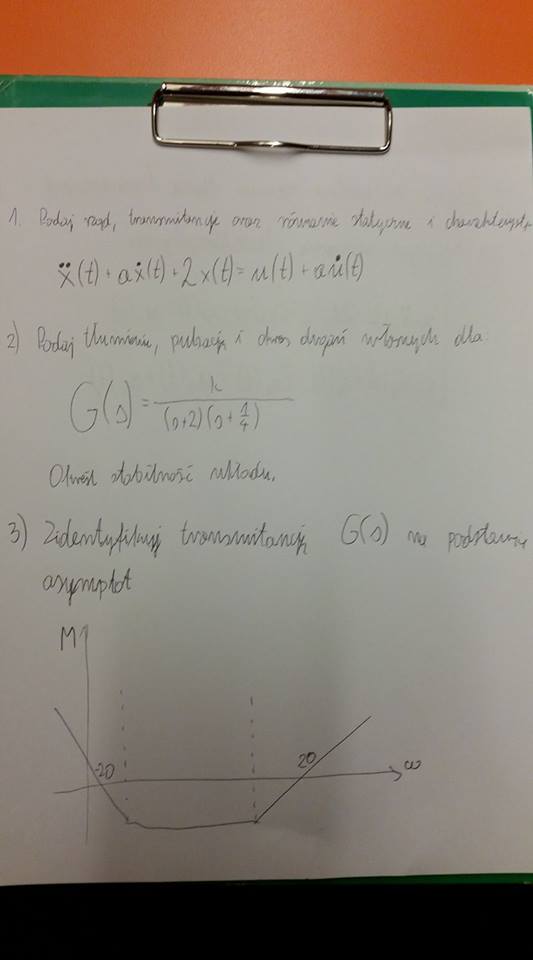 1. Podaj rząd, transmitancję oraz równanie statyczne i charakteryst
ẍ(t) + aẋ(t) + 2x(t) = u(t) + au̇(t)
2) Podaj tłumienie, pulsację i okres drgań własnych dla:
G(s) = k / (s+2)(s+1/4)
Określ stabilność układu.
3) Zidentyfikuj transmitancję G(s) na podstawie
asymptot
M
-20
20
ω